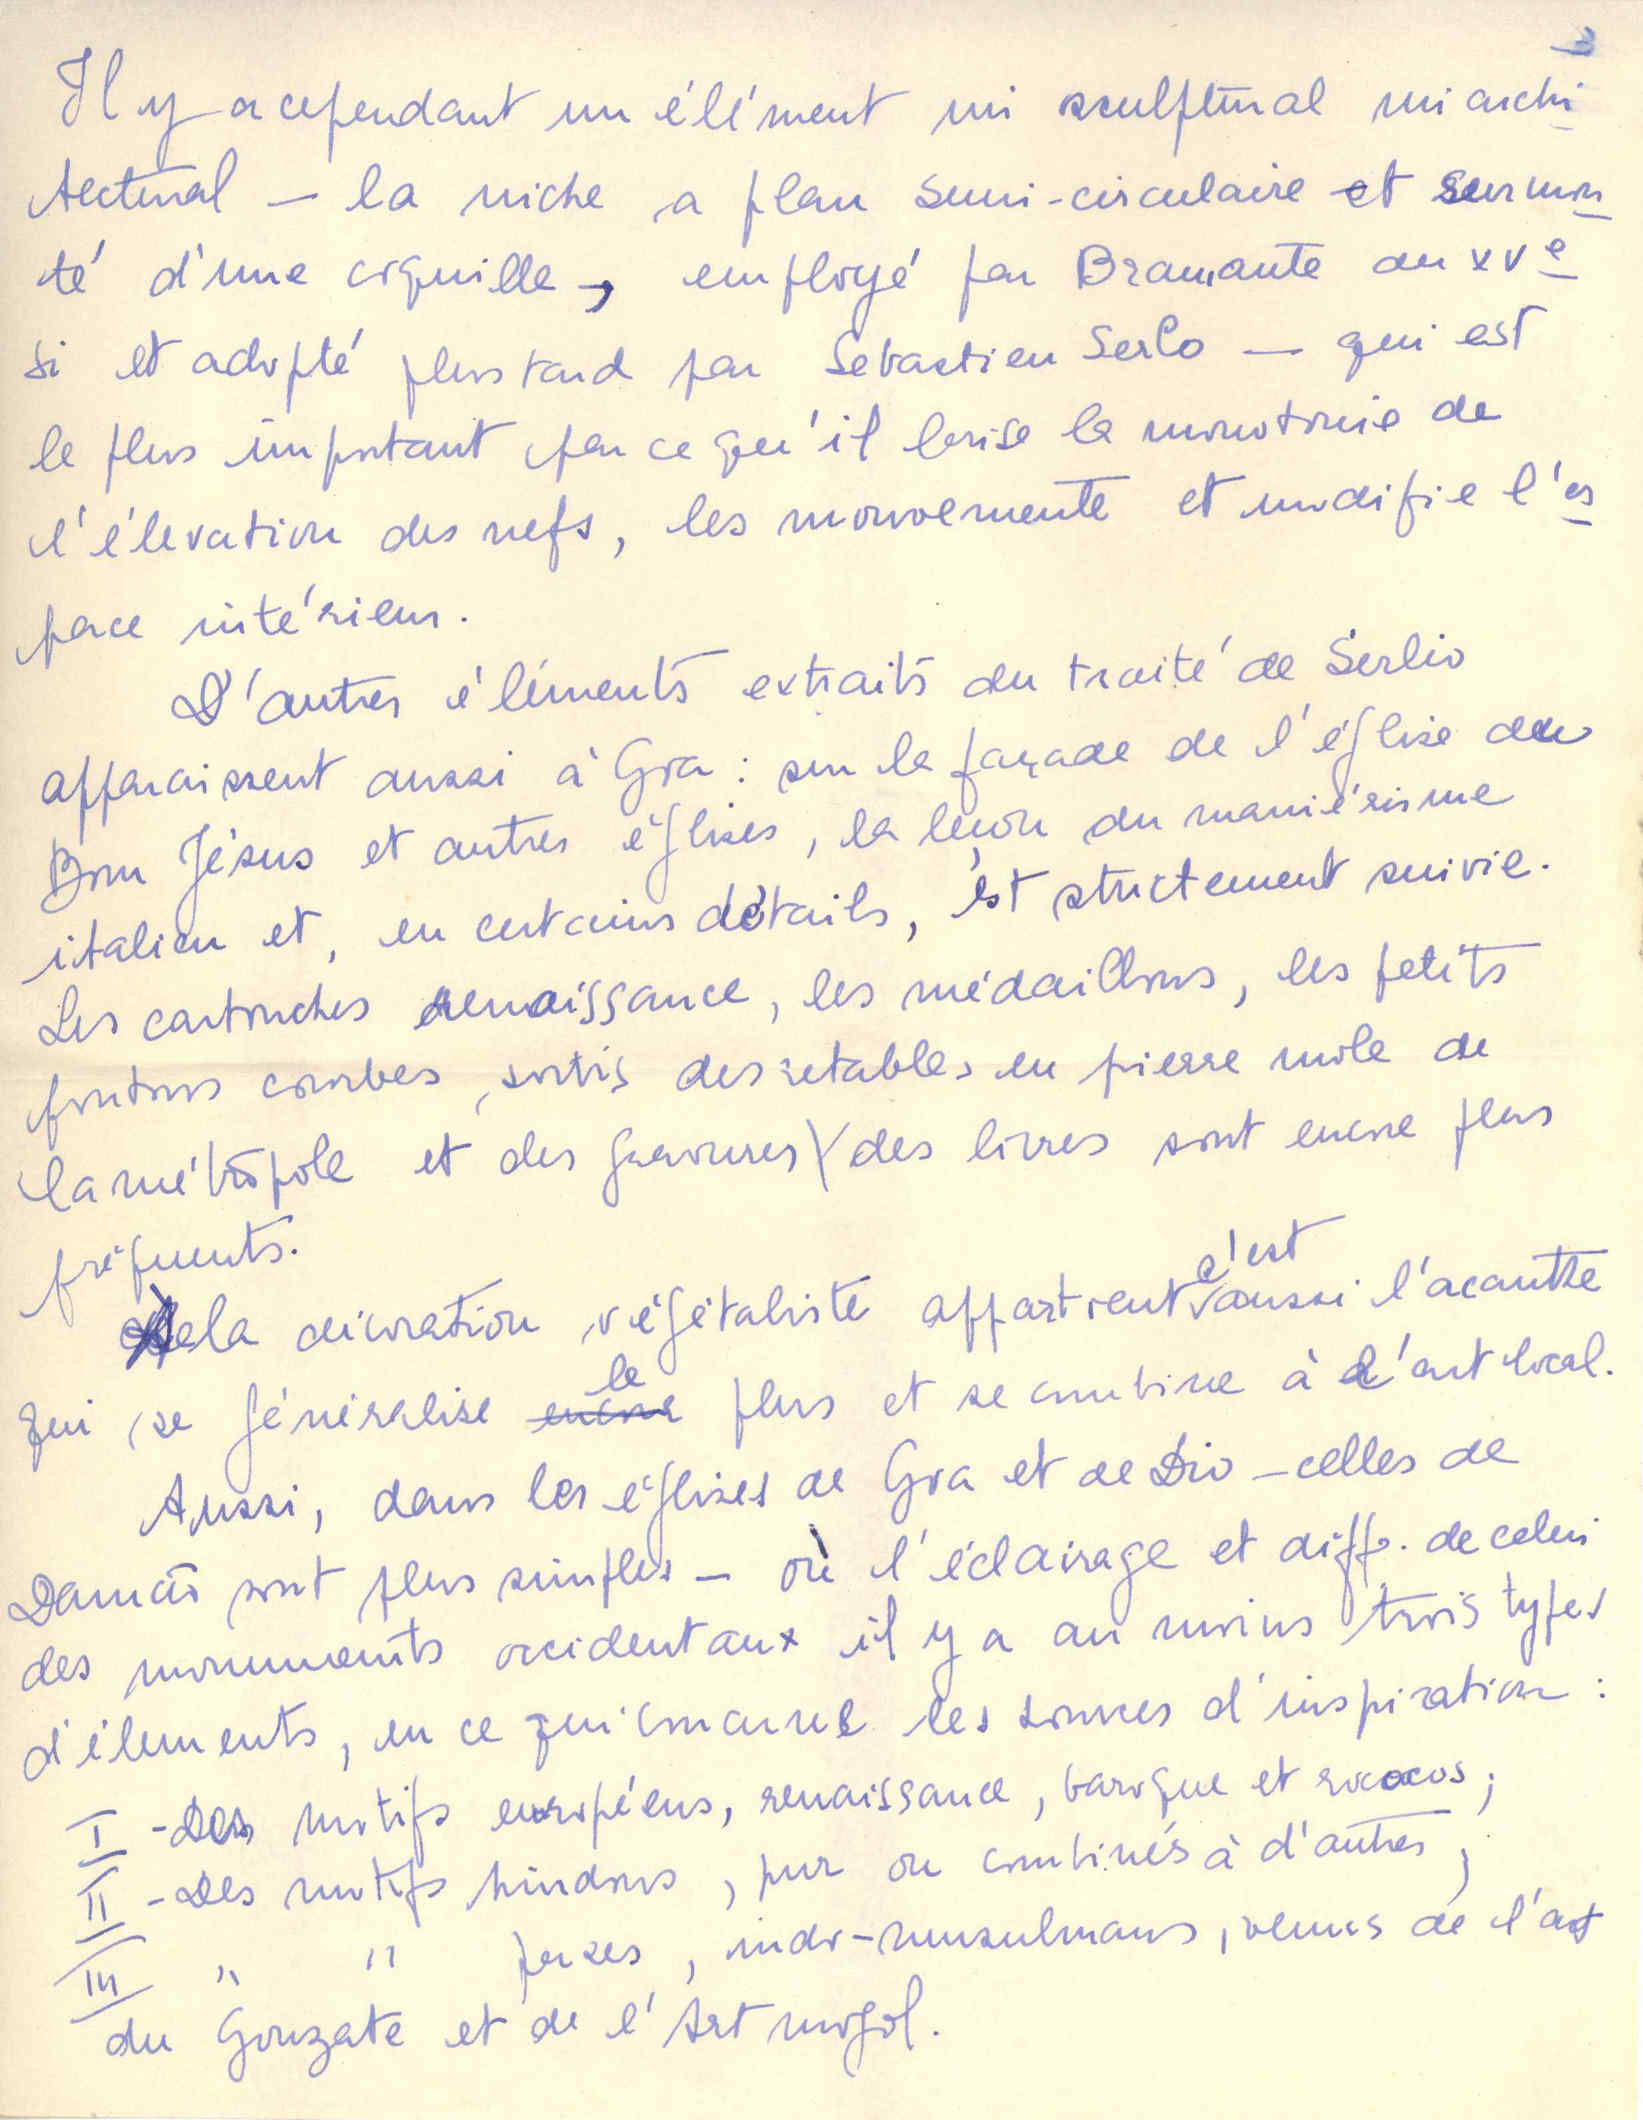 3
Il y a cependant un élément mi sculptural mi archi
tectural — la niche a plan semi-circulaire et surmon
té d'une coquille —, employé par Bramante au XVe
si et adopté plus tard par Sebastien Serlo — qui est
le plus important par ce qu'il brise la monotonie de
l'élevation des nefs, les mouvemente et modifie l'es
pace intérieur.
D'autres éléments extraits du traité de Serlio
apparaissent aussi à Goa : sur la façade de l'église du
Bom Jésus et autres églises, la leçon du maniérisme
italien et, en certains détails, est strictement suivie.
Les cartouches renaissance, les médaillons, les petits
frontons courbes, sortis des retables en pierre mole de
la métropole et des gravures des livres sont encore plus
fréquents.
A la décoration végétaliste appartient c'est aussi l'acanthe
qui se généralise le plus et se combine à l'art local.
Aussi, dans les églises de Goa et de Dio — celles de
Damão sont plus simples — où l'éclairage et diff. de celui
des monuments occidentaux il y a au moins trois types
d'élements, en ce qui concerne les sources d'inspiration :
I - Des motifs européens, renaissance, baroque et rococos ;
II - Des motifs hindous, pur ou combinés à d'autres ;
III " " perses, indo-musulmans, venus de l'art
du Gouzate et de l'Art mogol.